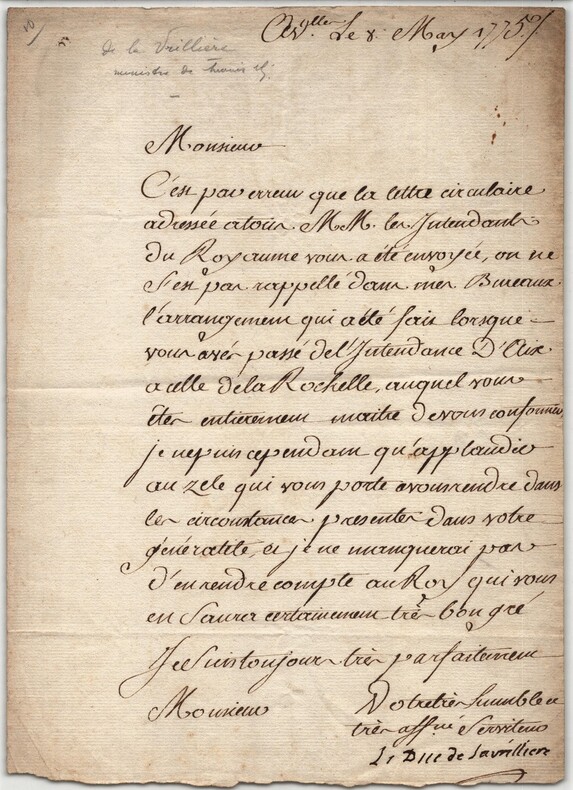 Vlles Le 8. May 1775.
de la Vrillière
ministre de
Monsieur
C'est par erreur que la lettre circulaire
adressée atous MM. les Intendants
du Royaume vous a été envoyée, on ne
s'est pas rappellé dans mes Bureaux
l'arrangement qui a été fait lorsque
vous avés passé de l'Intendance D'Aix
a celle de la Rochelle, auquel vous
êtes entierement maitre de vous conformer,
je ne puis cependant qu'applaudir
au zele qui vous porte avous rendre dans
les circonstances presentes dans votre
généralité, et je ne manquerai pas
d'en rendre compte au Roy qui vous
en saura certainement très bon gré
Je suis toujours très parfaitement
Monsieur
Votre très humble et
très affné Serviteur
Le Duc de Lavrilliere